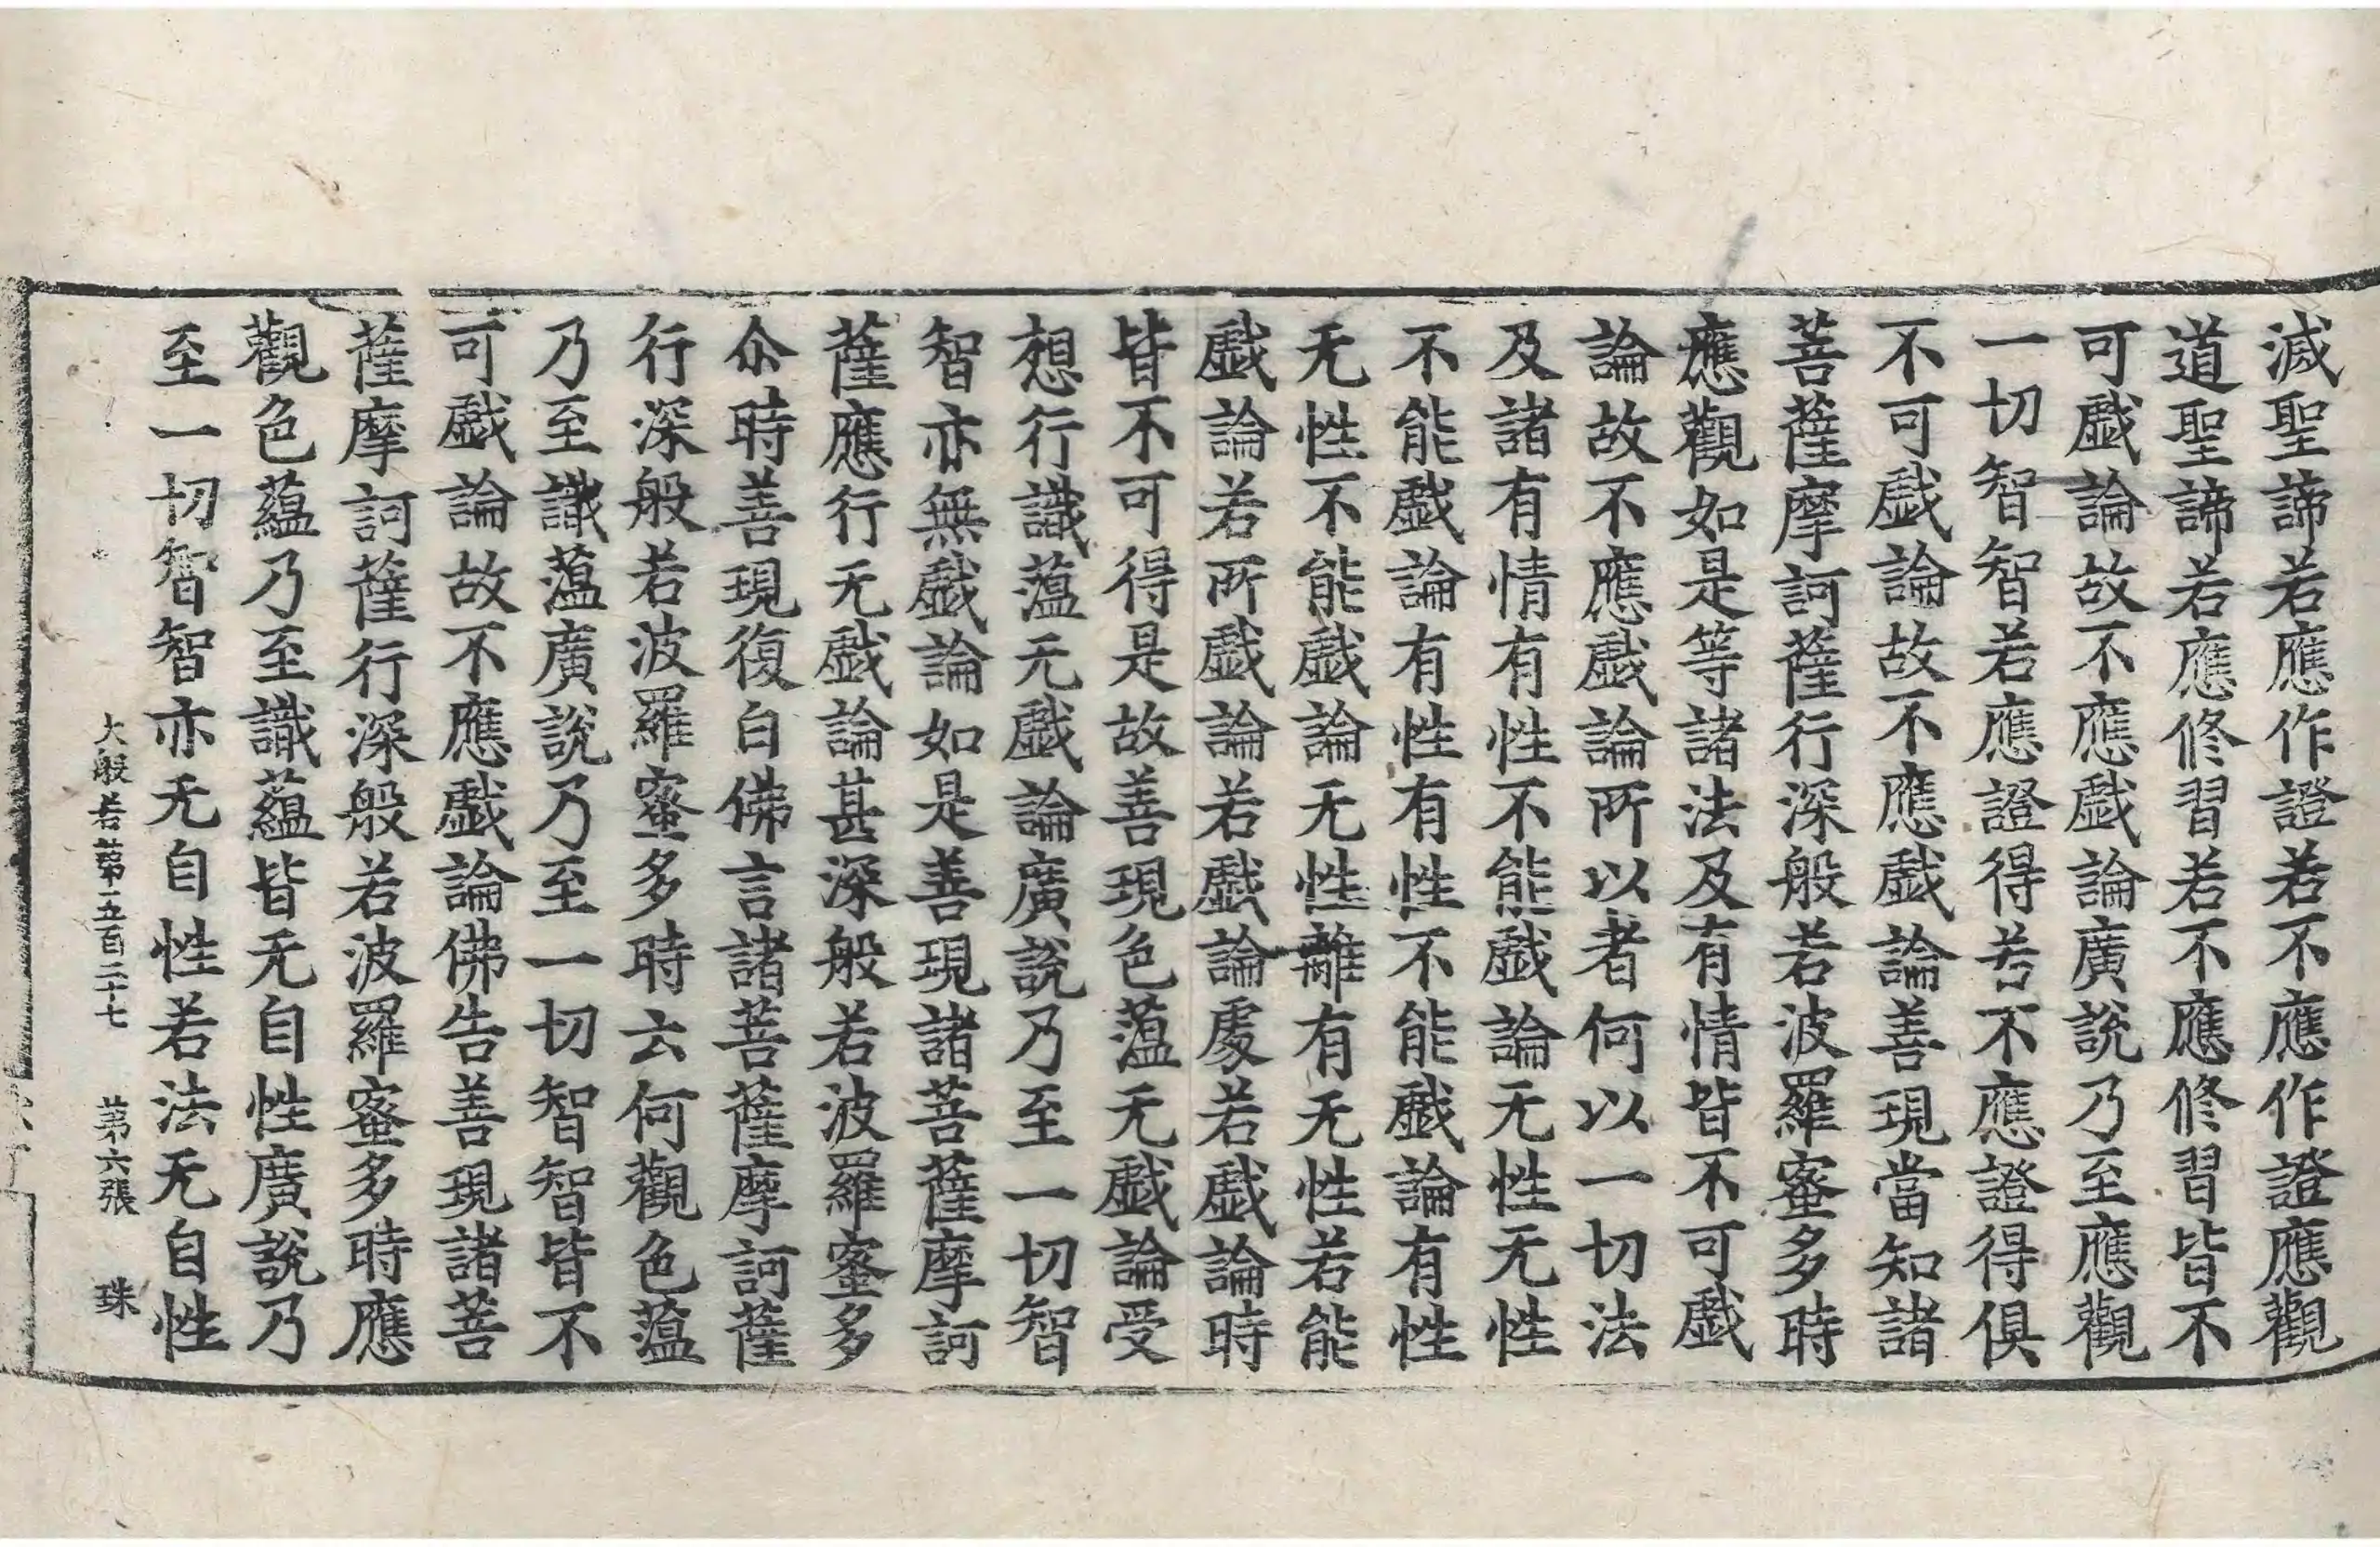 滅聖諦若應作證若不應作證應觀
道聖諦若應修習若不應修習皆不
可戱論故不應戱論廣說乃至應觀
一切智智若應證得若不應證得俱
不可戱論故不應戱論善現當知諸
菩薩摩訶薩行深般若波羅蜜多時
應觀如是等諸法及有情皆不可戱
論故不應戱論所以者何以一切法
及諸有情有性不能戱論无性无性
不能戱論有性有性不能戱論有性
无性不能戱論无性離有无性若能
戱論若所戱論若戱論處若戱論時
皆不可得是故善現色蕰无戱論受
想行識蕰无戱論廣說乃至一切智
智亦無戱論如是善現諸菩薩摩訶
薩應行无戱論甚深般若波羅蜜多
尒時善現復白佛言諸菩薩摩訶薩
行深般若波羅蜜多時云何觀色蕰
乃至識蕰廣說乃至一切智智皆不
可戱論故不應戱論佛告善現諸菩
薩摩訶薩行深般若波羅蜜多時應
觀色蘊乃至識蘊皆无自性廣說乃
至一切智智亦无自性若法无自性
大般若第五百二十七 第六張 珠